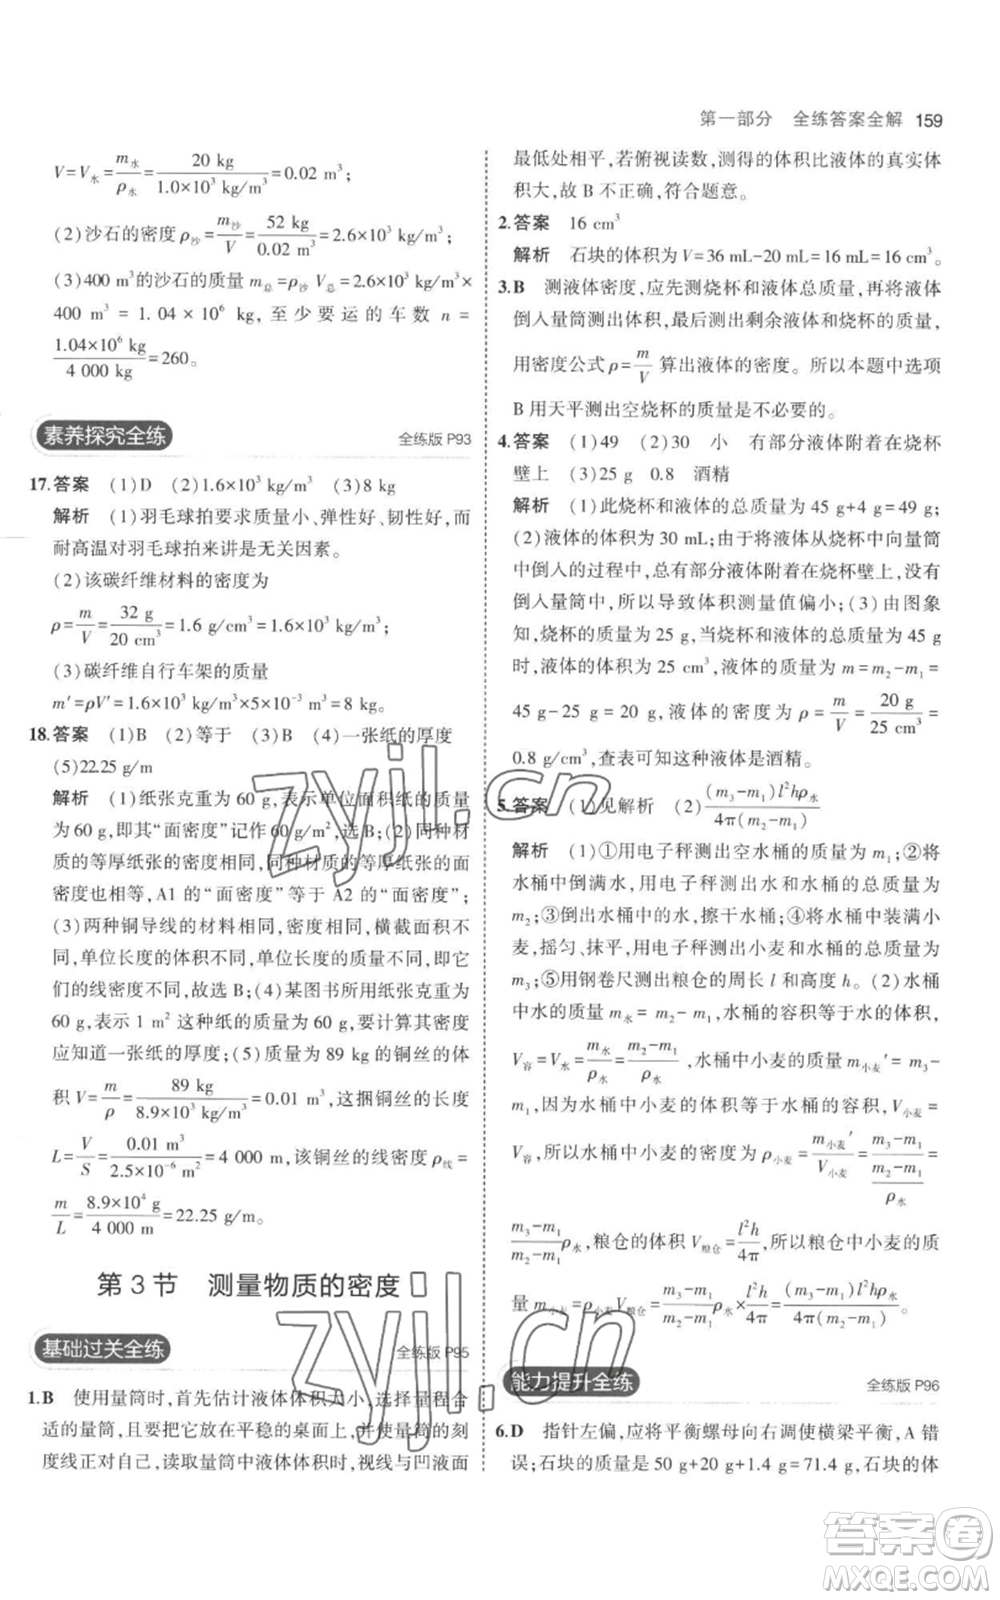 第一部分　全练答案全解　159
V=V水=m水/ρ水=20 kg/1.0×10³ kg/m³=0.02 m³；
(2)沙石的密度ρ沙=m沙/V=52 kg/0.02 m³=2.6×10³ kg/m³；
(3)400 m³的沙石的质量 m总=ρ沙 V总=2.6×10³ kg/m³×
400 m³=1.04×10⁶ kg，至少要运的车数 n=
1.04×10⁶ kg/4 000 kg=260。
素养探究全练　全练版 P93
17.答案　(1)D　(2)1.6×10³ kg/m³　(3)8 kg
解析　(1)羽毛球拍要求质量小、弹性好、韧性好，而
耐高温对羽毛球拍来讲是无关因素。
(2)该碳纤维材料的密度为
ρ=m/V=32 g/20 cm³=1.6 g/cm³=1.6×10³ kg/m³；
(3)碳纤维自行车架的质量
m′=ρV′=1.6×10³ kg/m³×5×10⁻³ m³=8 kg。
18.答案　(1)B　(2)等于　(3)B　(4)一张纸的厚度
(5)22.25 g/m
解析　(1)纸张克重为 60 g，表示单位面积纸的质量
为 60 g，即其“面密度”记作 60 g/m²，选 B；(2)两种材
质的等厚纸张的密度相同，同种材质的纸张厚度相同，面
密度也相等，A1 的“面密度”等于 A2 的“面密度”；
(3)两种铜导线的材料相同，密度相同，横截面积不
同，单位长度的体积不同，单位长度的质量不同，即它
们的线密度不同，故选 B；(4)某图书所用纸张克重为
60 g，表示 1 m² 这种纸的质量为 60 g，要计算其密度
应知道一张纸的厚度；(5)质量为 89 kg 的铜丝的体
积 V=m/ρ=89 kg/8.9×10³ kg/m³=0.01 m³，这捆铜丝的长度
L=V/S=0.01 m³/2.5×10⁻⁶ m²=4 000 m，该铜丝的线密度 ρ线=
m/L=8.9×10⁴ g/4 000 m=22.25 g/m。
第 3 节　测量物质的密度
基础过关全练　全练版 P95
1.B　使用量筒时，首先估计液体体积大小，选择量程合
适的量筒，且要把它放在平稳的桌面上，并使量筒的刻
度线正对自己，读取量筒中液体体积时，视线与凹液面
最低处相平，若俯视读数，测得的体积比液体的真实体
积大，故 B 不正确，符合题意。
2.答案　16 cm³
解析　石块的体积为 V=36 mL-20 mL=16 mL=16 cm³。
3.B　测液体密度，应先测烧杯和液体总质量，再将液体
倒入量筒测出体积，最后测出剩余液体和烧杯的质量，
用密度公式 ρ=m/V 算出液体的密度。所以本题中选项
B 用天平测出空烧杯的质量是不必要的。
4.答案　(1)49　(2)30　小　有部分液体附着在烧杯
壁上　(3)25 g　0.8　酒精
解析　(1)此烧杯和液体的总质量为 45 g+4 g=49 g；
(2)液体的体积为 30 mL；由于将液体从烧杯中向量筒
中倒入的过程中，总有部分液体附着在烧杯壁上，没有
倒入量筒中，所以导致体积测量值偏小；(3)由图象
知，烧杯的质量为 25 g，当烧杯和液体的总质量为 45 g
时，液体的体积为 25 cm³，液体的质量为 m=m₂-m₁=
45 g-25 g=20 g，液体的密度为 ρ=m/V=20 g/25 cm³=
0.8 g/cm³，查表可知这种液体是酒精。
5.答案　(1)见解析　(2)(m₃-m₁)l²hρ水/4π(m₂-m₁)
解析　(1)①用电子秤测出空水桶的质量为 m₁；②将
水桶中倒满水，用电子秤测出水和水桶的总质量为
m₂；③倒出水桶中的水，擦干水桶；④将水桶中装满小
麦，摇匀、抹平，用电子秤测出小麦和水桶的总质量为
m₃；⑤用钢卷尺测出粮仓的周长 l 和高度 h。(2)水桶
中水的质量为 m水=m₂-m₁，水桶的容积等于水的体积，
V容=V水=m水/ρ水=m₂-m₁/ρ水，水桶中小麦的质量 m小麦′=m₃-
m₁，因为水桶中小麦的体积等于水桶的容积，V小麦=
V容，所以水桶中小麦的密度为 ρ小麦=m小麦′/V小麦=m₃-m₁/(m₂-m₁/ρ水)=
m₃-m₁/m₂-m₁ ρ水，粮仓的体积 V粮仓=l²h/4π，所以粮仓中小麦的质
量 m小麦=ρ小麦V粮仓=m₃-m₁/m₂-m₁ ρ水×l²h/4π=(m₃-m₁)l²hρ水/4π(m₂-m₁)。
能力提升全练　全练版 P96
6.D　指针左偏，应将平衡螺母向右调使横梁平衡，A 错
误；石块的质量是 50 g+20 g+1.4 g=71.4 g，石块的体
zyjl.cn
zyjl.cn
答案圈
MXQE.COM